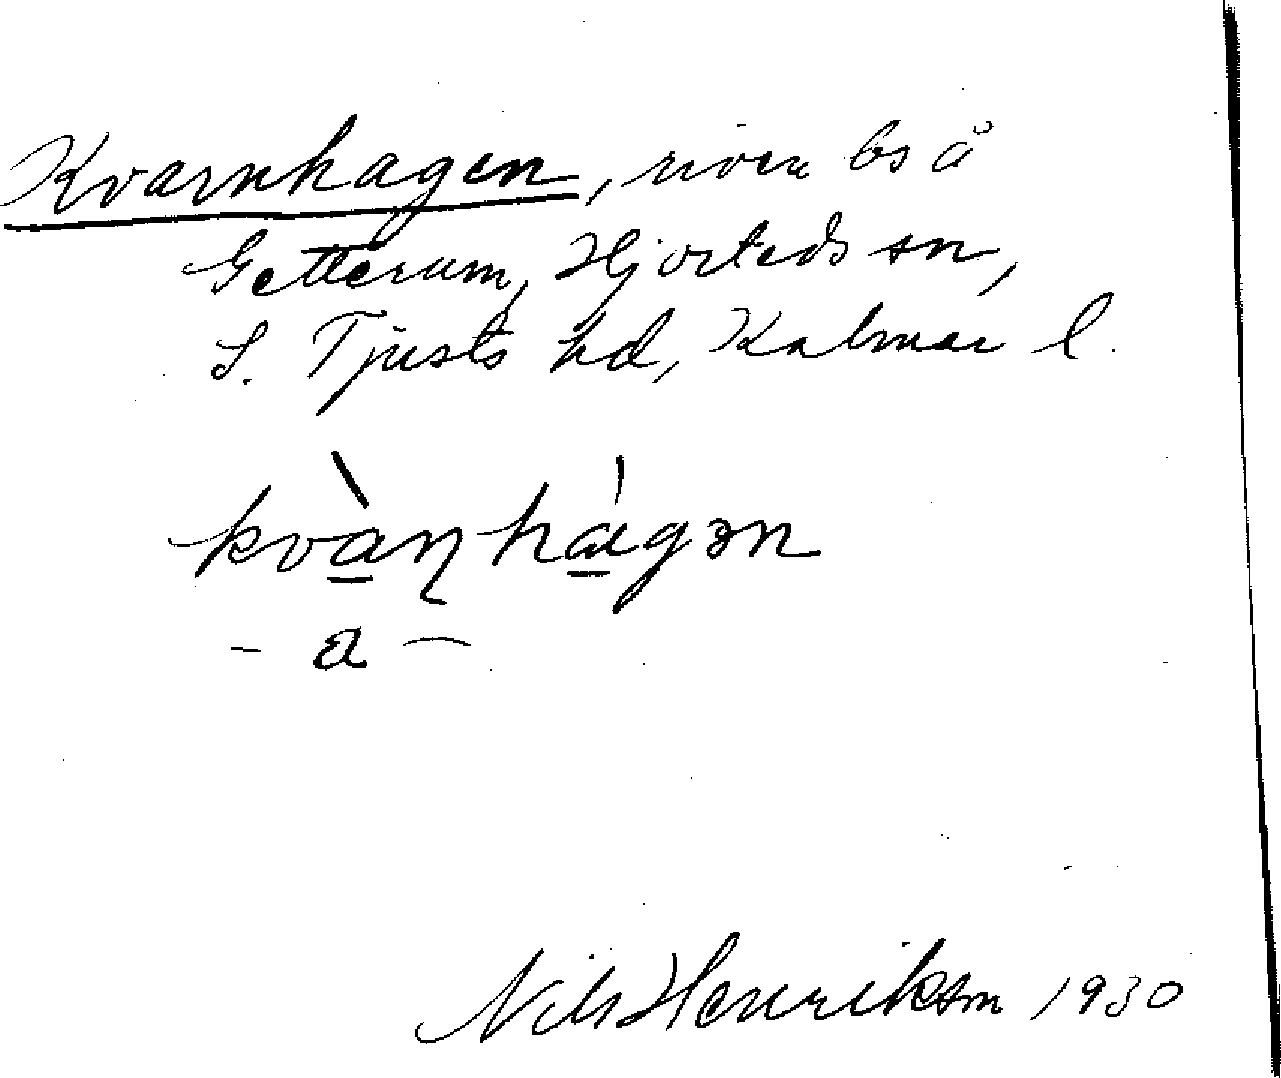 Kvarnhagen, riven bs å
Getterum, Hjorteds sn,
S. Tjusts hd, Kalmar l.
kvàɳhágən
- a -
Nils Henrikson 1930